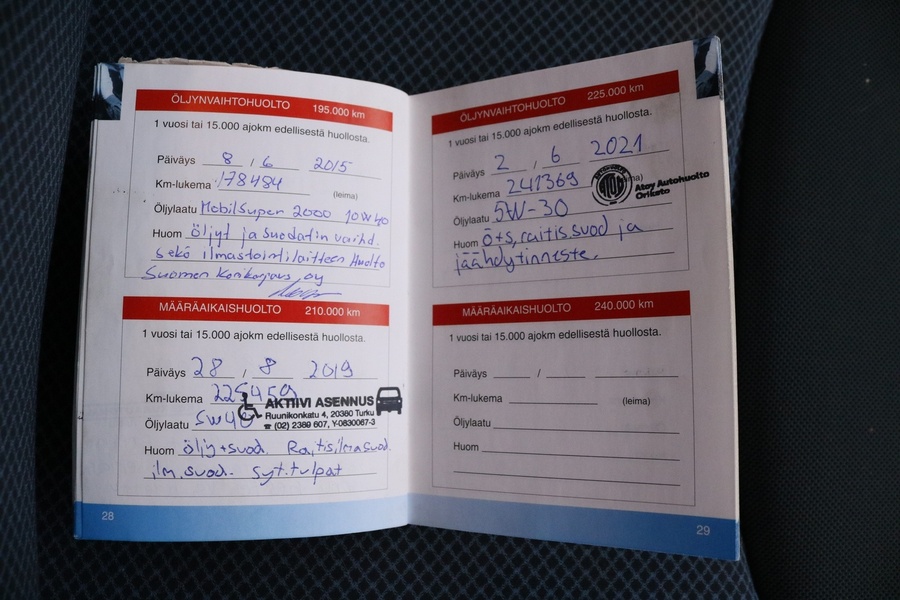 ÖLJYNVAIHTOHUOLTO 195.000 km
1 vuosi tai 15.000 ajokm edellisestä huollosta.
Päiväys 8 / 6 2015
Km-lukema 178484
(leima)
Öljylaatu MobilSuper 2000 10W40
Huom öljyt ja suodatin vaihd.
sekä ilmastointilaitteen Huolto
Suomen Konkorjaus oy
MÄÄRÄAIKAISHUOLTO 210.000 km
1 vuosi tai 15.000 ajokm edellisestä huollosta.
Päiväys 28 / 8 2019
Km-lukema 225459
AKTIIVI ASENNUS
Ruunikonkatu 4, 20380 Turku
☎ (02) 2389 607, Y-0830067-3
Öljylaatu 5W40
Huom öljy+suod. Raitisilmasuod.
ilm.suod. syt.tulpat
28
ÖLJYNVAIHTOHUOLTO 225.000 km
1 vuosi tai 15.000 ajokm edellisestä huollosta.
Päiväys 2 / 6 2021
Km-lukema 241369
ATOY
Atoy Autohuolto
Orikato
Öljylaatu 5W-30
Huom ö+s, raitissuod ja
jäähdytinneste.
MÄÄRÄAIKAISHUOLTO 240.000 km
1 vuosi tai 15.000 ajokm edellisestä huollosta.
Päiväys /
Km-lukema
(leima)
Öljylaatu
Huom
29